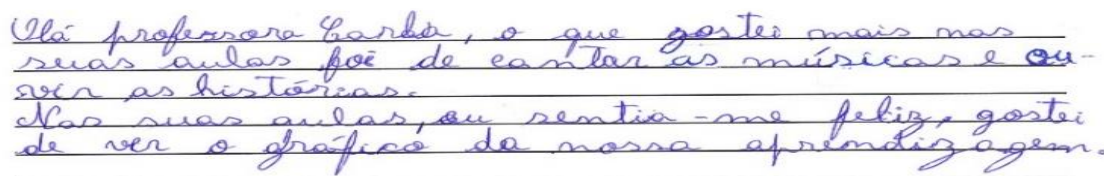 Olá professora Carla, o que gostei mais nas
suas aulas foi de cantar as músicas e ou-
vir as histórias.
Nas suas aulas, eu sentia-me feliz, gostei
de ver o gráfico da nossa aprendizagem.